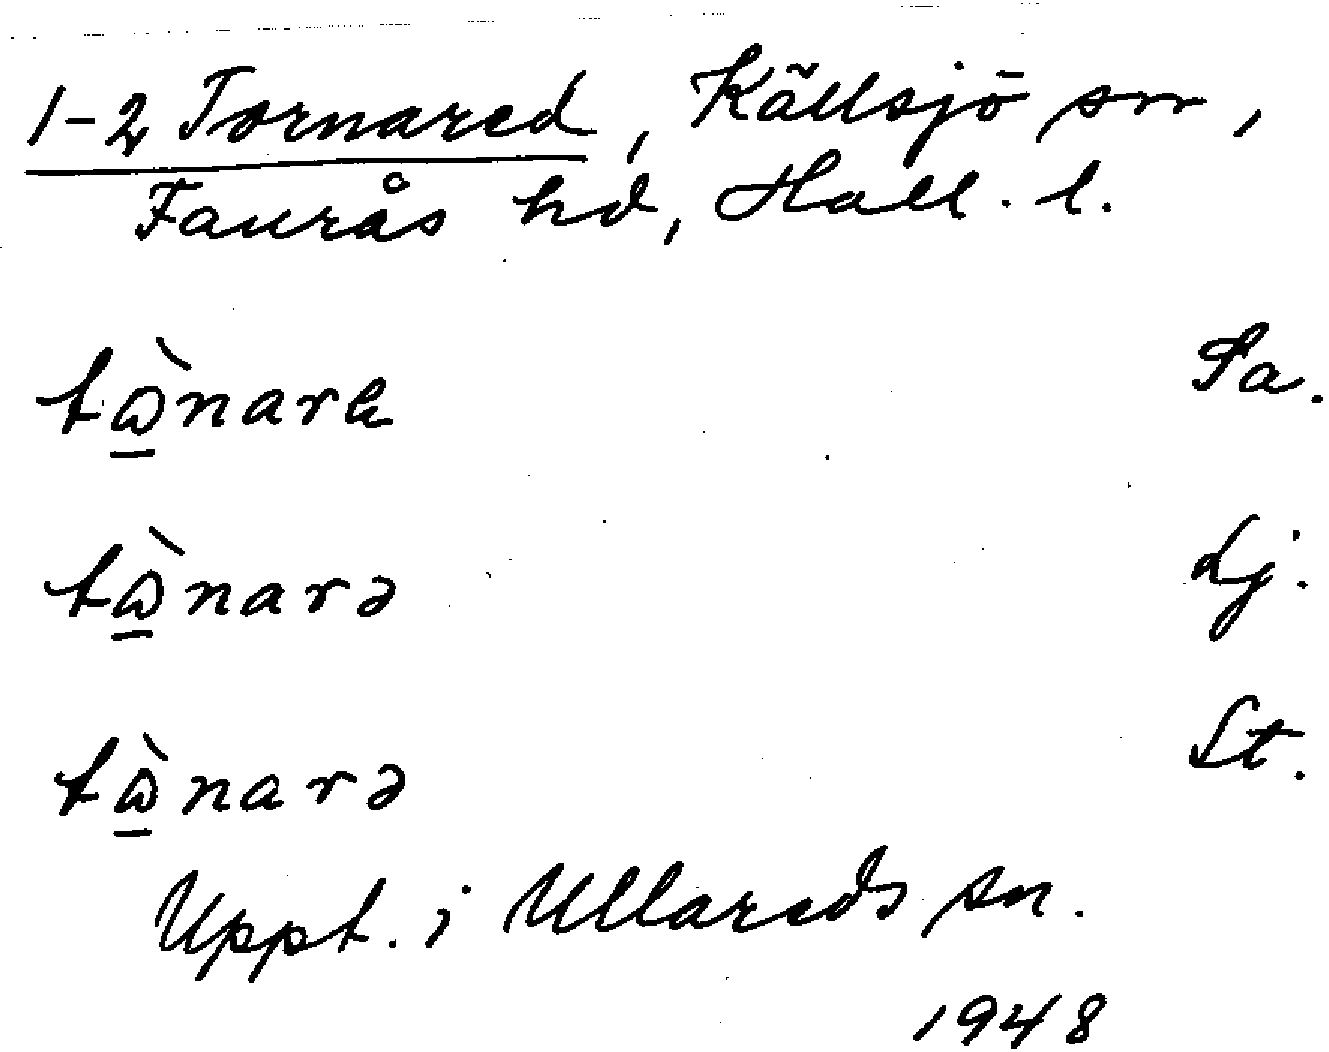 1-2 Tornared, Källsjö sn,
Faurås hd, Hall. l.
tὼ̲narɛ Sa.
tὼ̲narə Lj.
tὼ̲narə St.
Uppt. i Ullareds sn.
1948